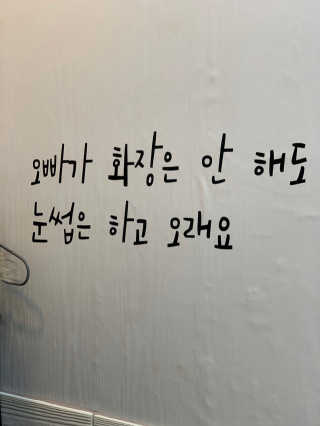 오빠가 화장은 안 해도
눈썹은 하고 오래요